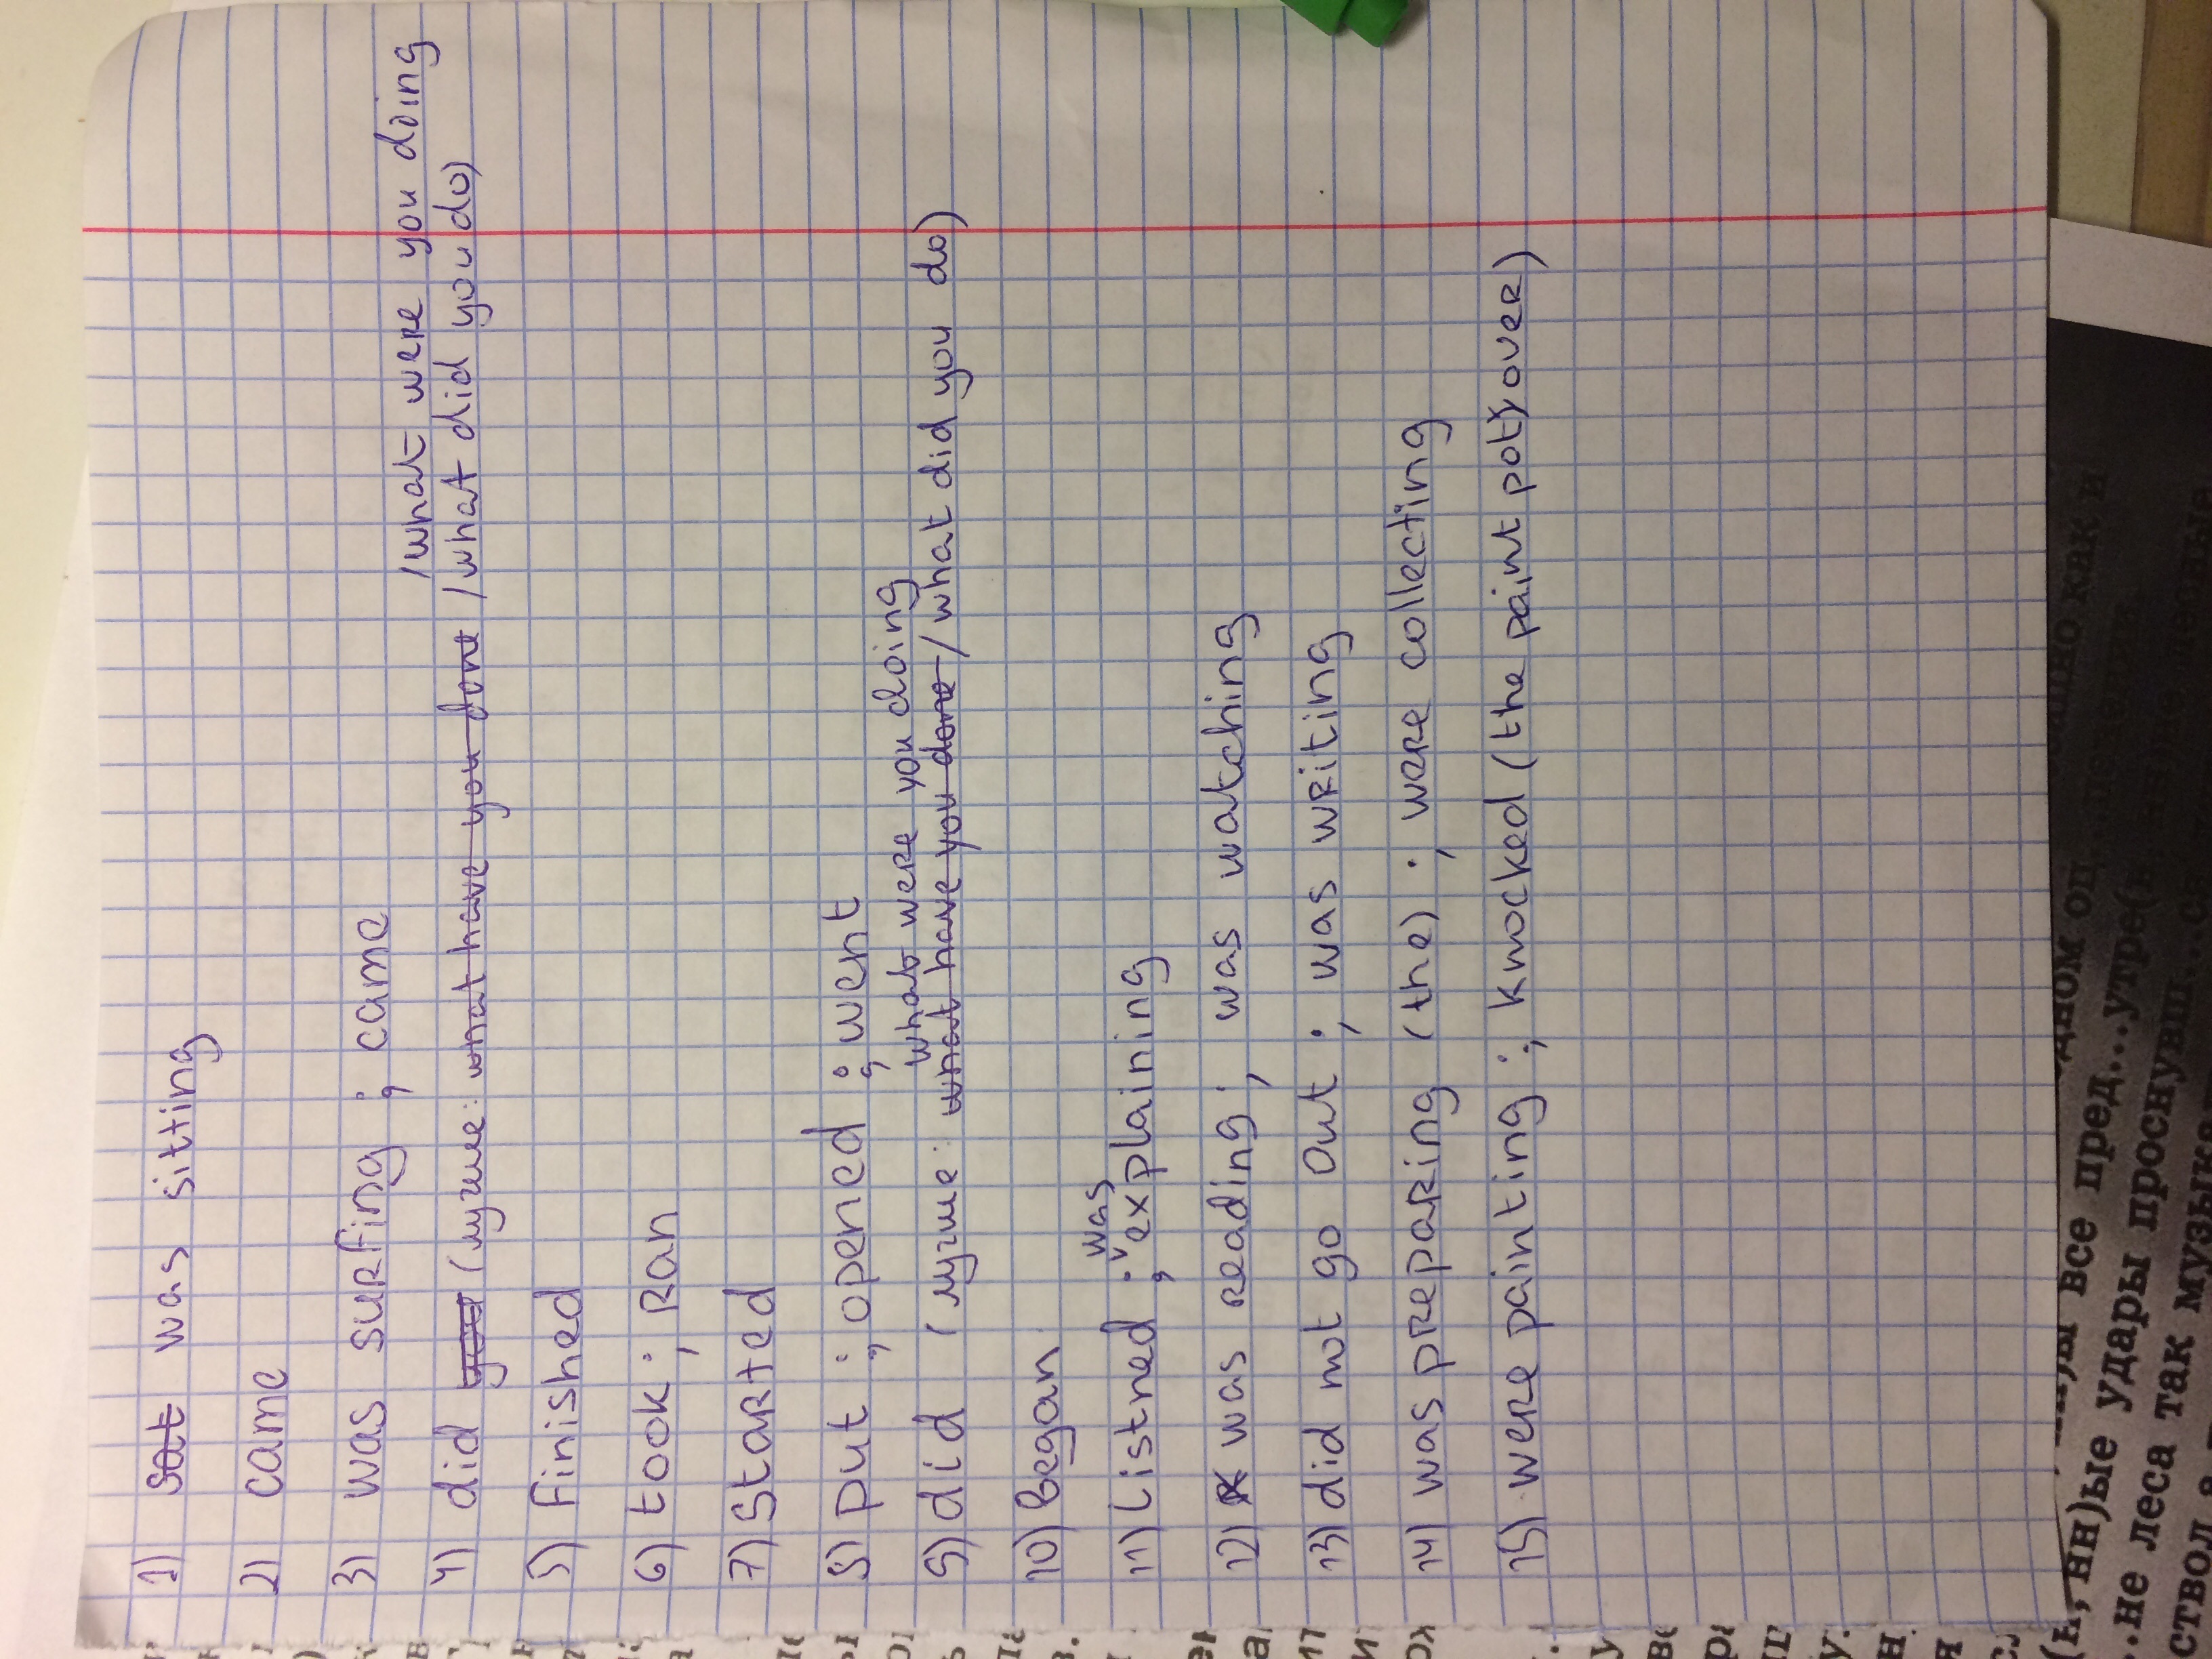 1) sat was sitting
2) came
3) was surfing ; came
/what were you doing
4) did you (лучше: what have you done /what did you do)
5) finished
6) took ; ran
7) started
8) put ; opened ; went
what were you doing
9) did (лучше: what have you done /what did you do)
10) began
was
11) listned ; explaining
12) was reading ; was watching
13) did not go out ; was writing
14) was preparing (the) ; were collecting
15) were painting ; knocked (the paint pot) over)
все пред...утре(н,
(н,нн)ые удары проснувш...
...не леса так музык
ствол